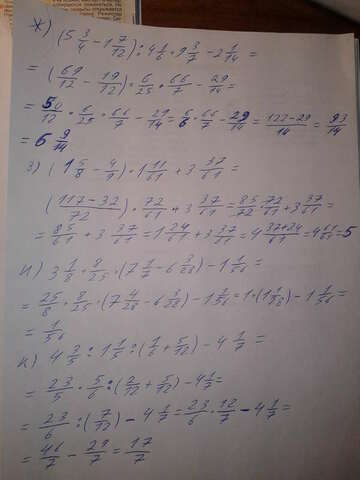 ж) (5 3/4 - 1 7/12) : 4 1/6 * 9 3/7 - 2 1/14 =
= (69/12 - 19/12) * 6/25 * 66/7 - 29/14 =
= 50/12 * 6/25 * 66/7 - 29/14 = 6/6 * 66/7 - 29/14 = 122-29/14 = 93/14
= 6 9/14
з) (1 5/8 - 4/9) * 1 11/61 + 3 37/61 =
(117-32/72) * 72/61 + 3 37/61 = 85/72 * 72/61 + 3 37/61 =
= 85/61 + 3 37/61 = 1 24/61 + 3 37/61 = 4 37+24/61 = 4 61/61 = 5
и) 3 1/8 * 8/25 * (7 1/7 - 6 3/28) - 1 1/56 =
= 25/8 * 8/25 * (7 4/28 - 6 3/28) - 1 1/56 = 1 * (1 1/28) - 1 1/56 =
= 1/56
к) 4 3/5 : 1 1/5 : (1/6 + 5/12) - 4 1/7 =
= 23/5 * 5/6 : (2/12 + 5/12) - 4 1/7 =
= 23/6 : (7/12) - 4 1/7 = 23/6 * 12/7 - 4 1/7 =
= 46/7 - 29/7 = 17/7